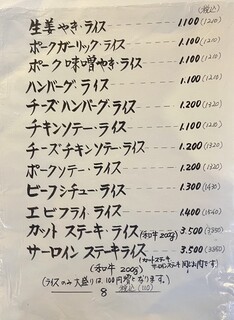 (税込)
生姜やき・ライス 1.100(1210)
ポークガーリック・ライス 1.100(1210)
ポーク味噌やき・ライス 1.100(1210)
ハンバーグ・ライス 1.100(1210)
チーズハンバーグ・ライス 1.200(1320)
チキンソテー・ライス 1.100(1210)
チーズチキンソテー・ライス 1.200(1320)
ポークソテー・ライス 1.200(1320)
ビーフシチュー・ライス 1.300(1430)
エビフライ・ライス 1.400(1540)
カットステーキ・ライス (和牛200g) 3.500(3850)
サーロインステーキライス 3.500(3850)
(和牛200g) (カットステーキ サーロインステーキ 同じお肉です)
(ライスのみ大盛りは、100円増となります。)
税込(110)
8